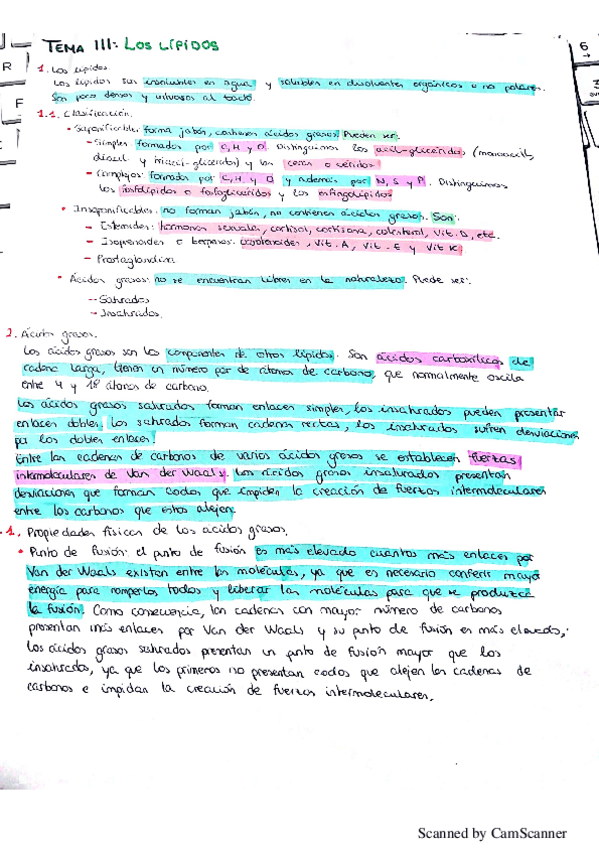 TEMA III: LOS LÍPIDOS
1. Los lípidos.
Los lípidos son insolubles en agua y solubles en disolventes orgánicos o no polares.
Son poco densos y untuosos al tacto.
1.1. Clasificación.
• Saponificables: forma jabón, contienen ácidos grasos. Pueden ser:
- Simples formados por C, H y O. Distinguimos los acil-glicéridos (monoacil,
diacil y triacil-glicéridos) y las ceras o céridos.
- Complejos: formados por C, H y O y además por N, S y P. Distinguimos
los fosfolípidos o fosfoglicéridos y los esfingolípidos
• Insaponificables: no forman jabón, no contienen ácidos grasos. Son:
- Esteroides: hormonas sexuales, cortisol, cortisona, colesterol, Vit. D, etc.
- Isoprenoides o terpenos: carotenoides, Vit. A, Vit. E y Vit K
- Prostaglandina
• Ácidos grasos: no se encuentran libres en la naturaleza. Puede ser:
- Saturados
- Insaturados.
2. Ácidos grasos.
Los ácidos grasos son los componentes de otros lípidos. Son ácidos carboxílicos de
cadena larga, tienen un número par de átomos de carbono, que normalmente oscila
entre 4 y 18 átomos de carbono.
Los ácidos grasos saturados forman enlaces simples, los insaturados pueden presentar
enlaces dobles. Los saturados forman cadenas rectas, los insaturados sufren desviaciones
por los dobles enlaces.
Entre las cadenas de carbonos de varios ácidos grasos se establecen fuerzas
intermoleculares de Van der Waals. Los ácidos grasos insaturados presentan
desviaciones que forman codos que impiden la creación de fuerzas intermoleculares
entre los carbonos que estos alejen.
1. Propiedades físicas de los ácidos grasos.
• Punto de fusión: el punto de fusión es más elevado cuantos más enlaces por
Van der Waals existan entre las moléculas, ya que es necesario conferir mayor
energía para romperlos todos y liberar las moléculas para que se produzca
la fusión. Como consecuencia, las cadenas con mayor número de carbonos
presentan más enlaces por Van der Waals y su punto de fusión es más elevado,
los ácidos grasos saturados presentan un punto de fusión mayor que los
insaturados, ya que los primeros no presentan codos que alejen las cadenas de
carbonos e impidan la creación de fuerzas intermoleculares.
Scanned by CamScanner